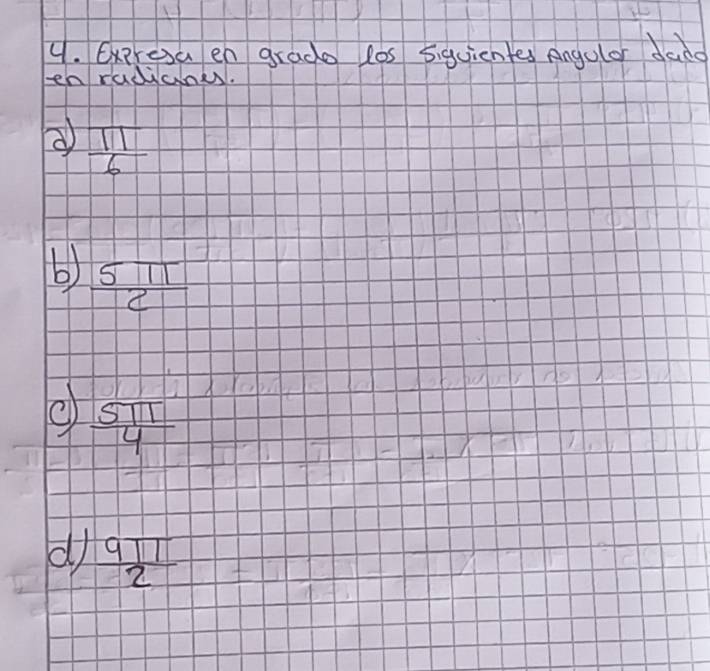 4. Expresa en grado los siguientes Angulos dado
en radianes.
a) π/6
b) 5π/2
c) 5π/4
d) 9π/2